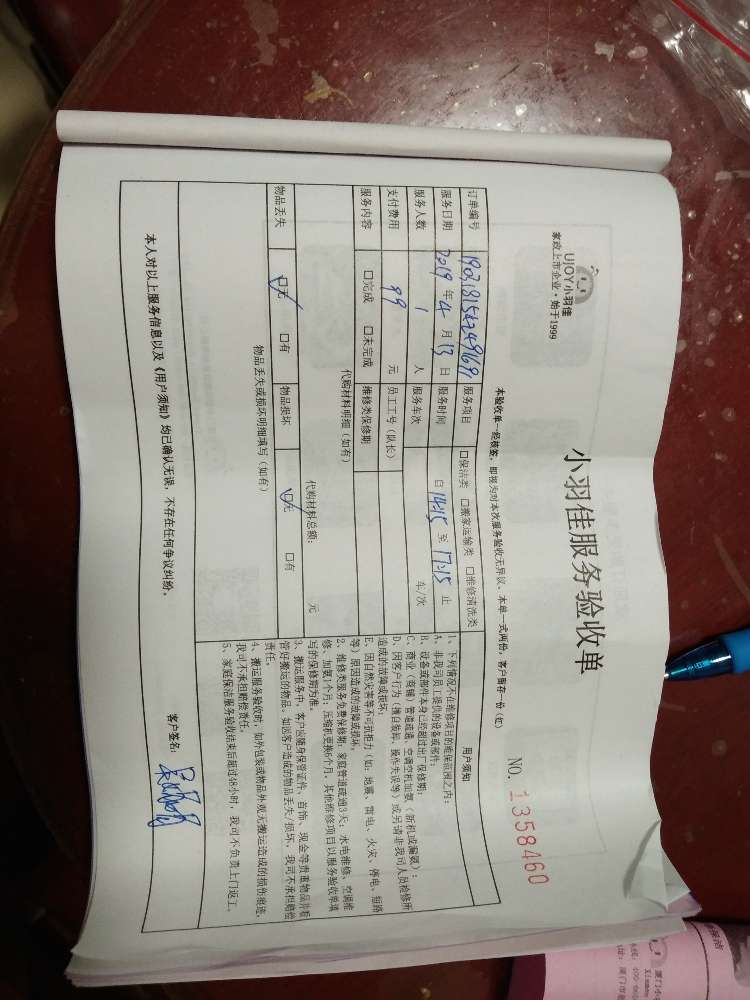 UJOY小羽佳
家政上市企业·始于1999
小羽佳服务验收单
NO. 1358460
本验收单一经核签，即视为对本次服务验收无异议，本单一式两份，客户留存一份（红）
订单编号 服务项目 □保洁类 □搬家运输类 □维修清洗类
服务日期 2019年4月13日 服务时间 自14:15至17:15止
服务人数 1人 服务车次 车/次
支付费用 99元 员工工号（队长）
服务内容 □完成 □未完成 维修类保修期
代购材料明细（如有）
代购材料总额： 元
物品丢失 ☑无 □有 物品损坏 ☑无 □有
物品丢失或损坏明细填写（如有）
用户须知
1、下列情况不在维修项目的维保范围之内：
A、非我司员工提供的设备或部件；
B、设备或部件本身已经超过出厂保修期；
C、商业（商铺）管道疏通、空调空机加氨（新机或漏氨）；
D、因客户行为（擅自装卸、操作失误等）或另请非我司人员检修所
造成的故障或损坏；
E、因自然灾害等不可抗拒力（如：地震、雷电、火灾、停电、短路
等）原因造成的故障或损坏。
2、维修类服务免费保修期：家庭管道疏通3天；水电维修、空调维
修、加氨1个月；压缩机更换6个月，其他维修项目以服务验收单填
写的保修期为准。
3、搬运服务中，客户应随身保管证件、首饰、现金等贵重物品并看
管好搬运的物品，如因客户造成的物品丢失/损坏，我司不承担赔偿
责任。
4、搬运服务验收时，如外包装或物品外观无搬运造成的损伤痕迹，
我司不承担赔偿责任。
5、家庭保洁服务验收结束后超过48小时，我司不负责上门返工。
本人对以上服务信息以及《用户须知》均已确认无误，不存在任何争议纠纷。
客户签名：